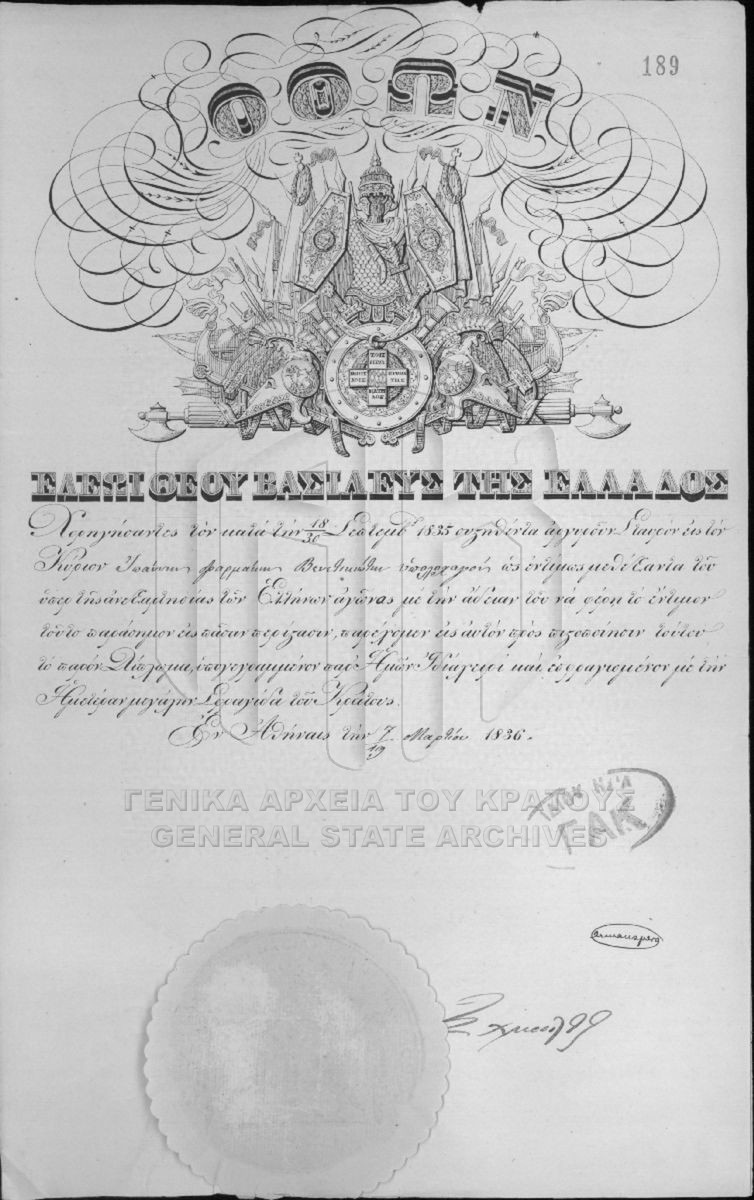 189
ΟΘΩΝ
ΕΛΕΩι ΘΕΟΥ ΒΑΣΙΛΕΥΣ ΤΗΣ ΕΛΛΑΔΟΣ
Χορηγήσαντες τὸν κατὰ τὴν 18/30 Σεπτεμβ. 1835 συστηθέντα ἀργυροῦν Σταυρὸν εἰς τὸν
Κύριον Ἰωάννην Φαρμάκην ὑπολοχαγὸν ὡς ἐντίμως μεθέξαντα τοῦ
ὑπὲρ τῆς ἀνεξαρτησίας τῶν Ἑλλήνων ἀγῶνος μὲ τὴν ἄδειαν τοῦ νὰ φέρῃ τὸ ἔντιμον
τοῦτο παράσημον εἰς πᾶσαν περίστασιν, παρέχομεν εἰς αὐτὸν πρὸς πιστοποίησιν τούτου
τὸ παρὸν Δίπλωμα, ὑπογεγραμμένον παρ' Ἡμῶν Ἰδιοχείρως καὶ ἐσφραγισμένον μὲ τὴν
Ἡμετέραν μεγάλην Σφραγίδα τοῦ Κράτους.
Ἐν Ἀθήναις τὴν 7/19 Μαρτίου 1836.
ΓΕΝΙΚΑ ΑΡΧΕΙΑ ΤΟΥ ΚΡΑΤΟΥΣ
GENERAL STATE ARCHIVES
ΓΑΚ
Armansperg